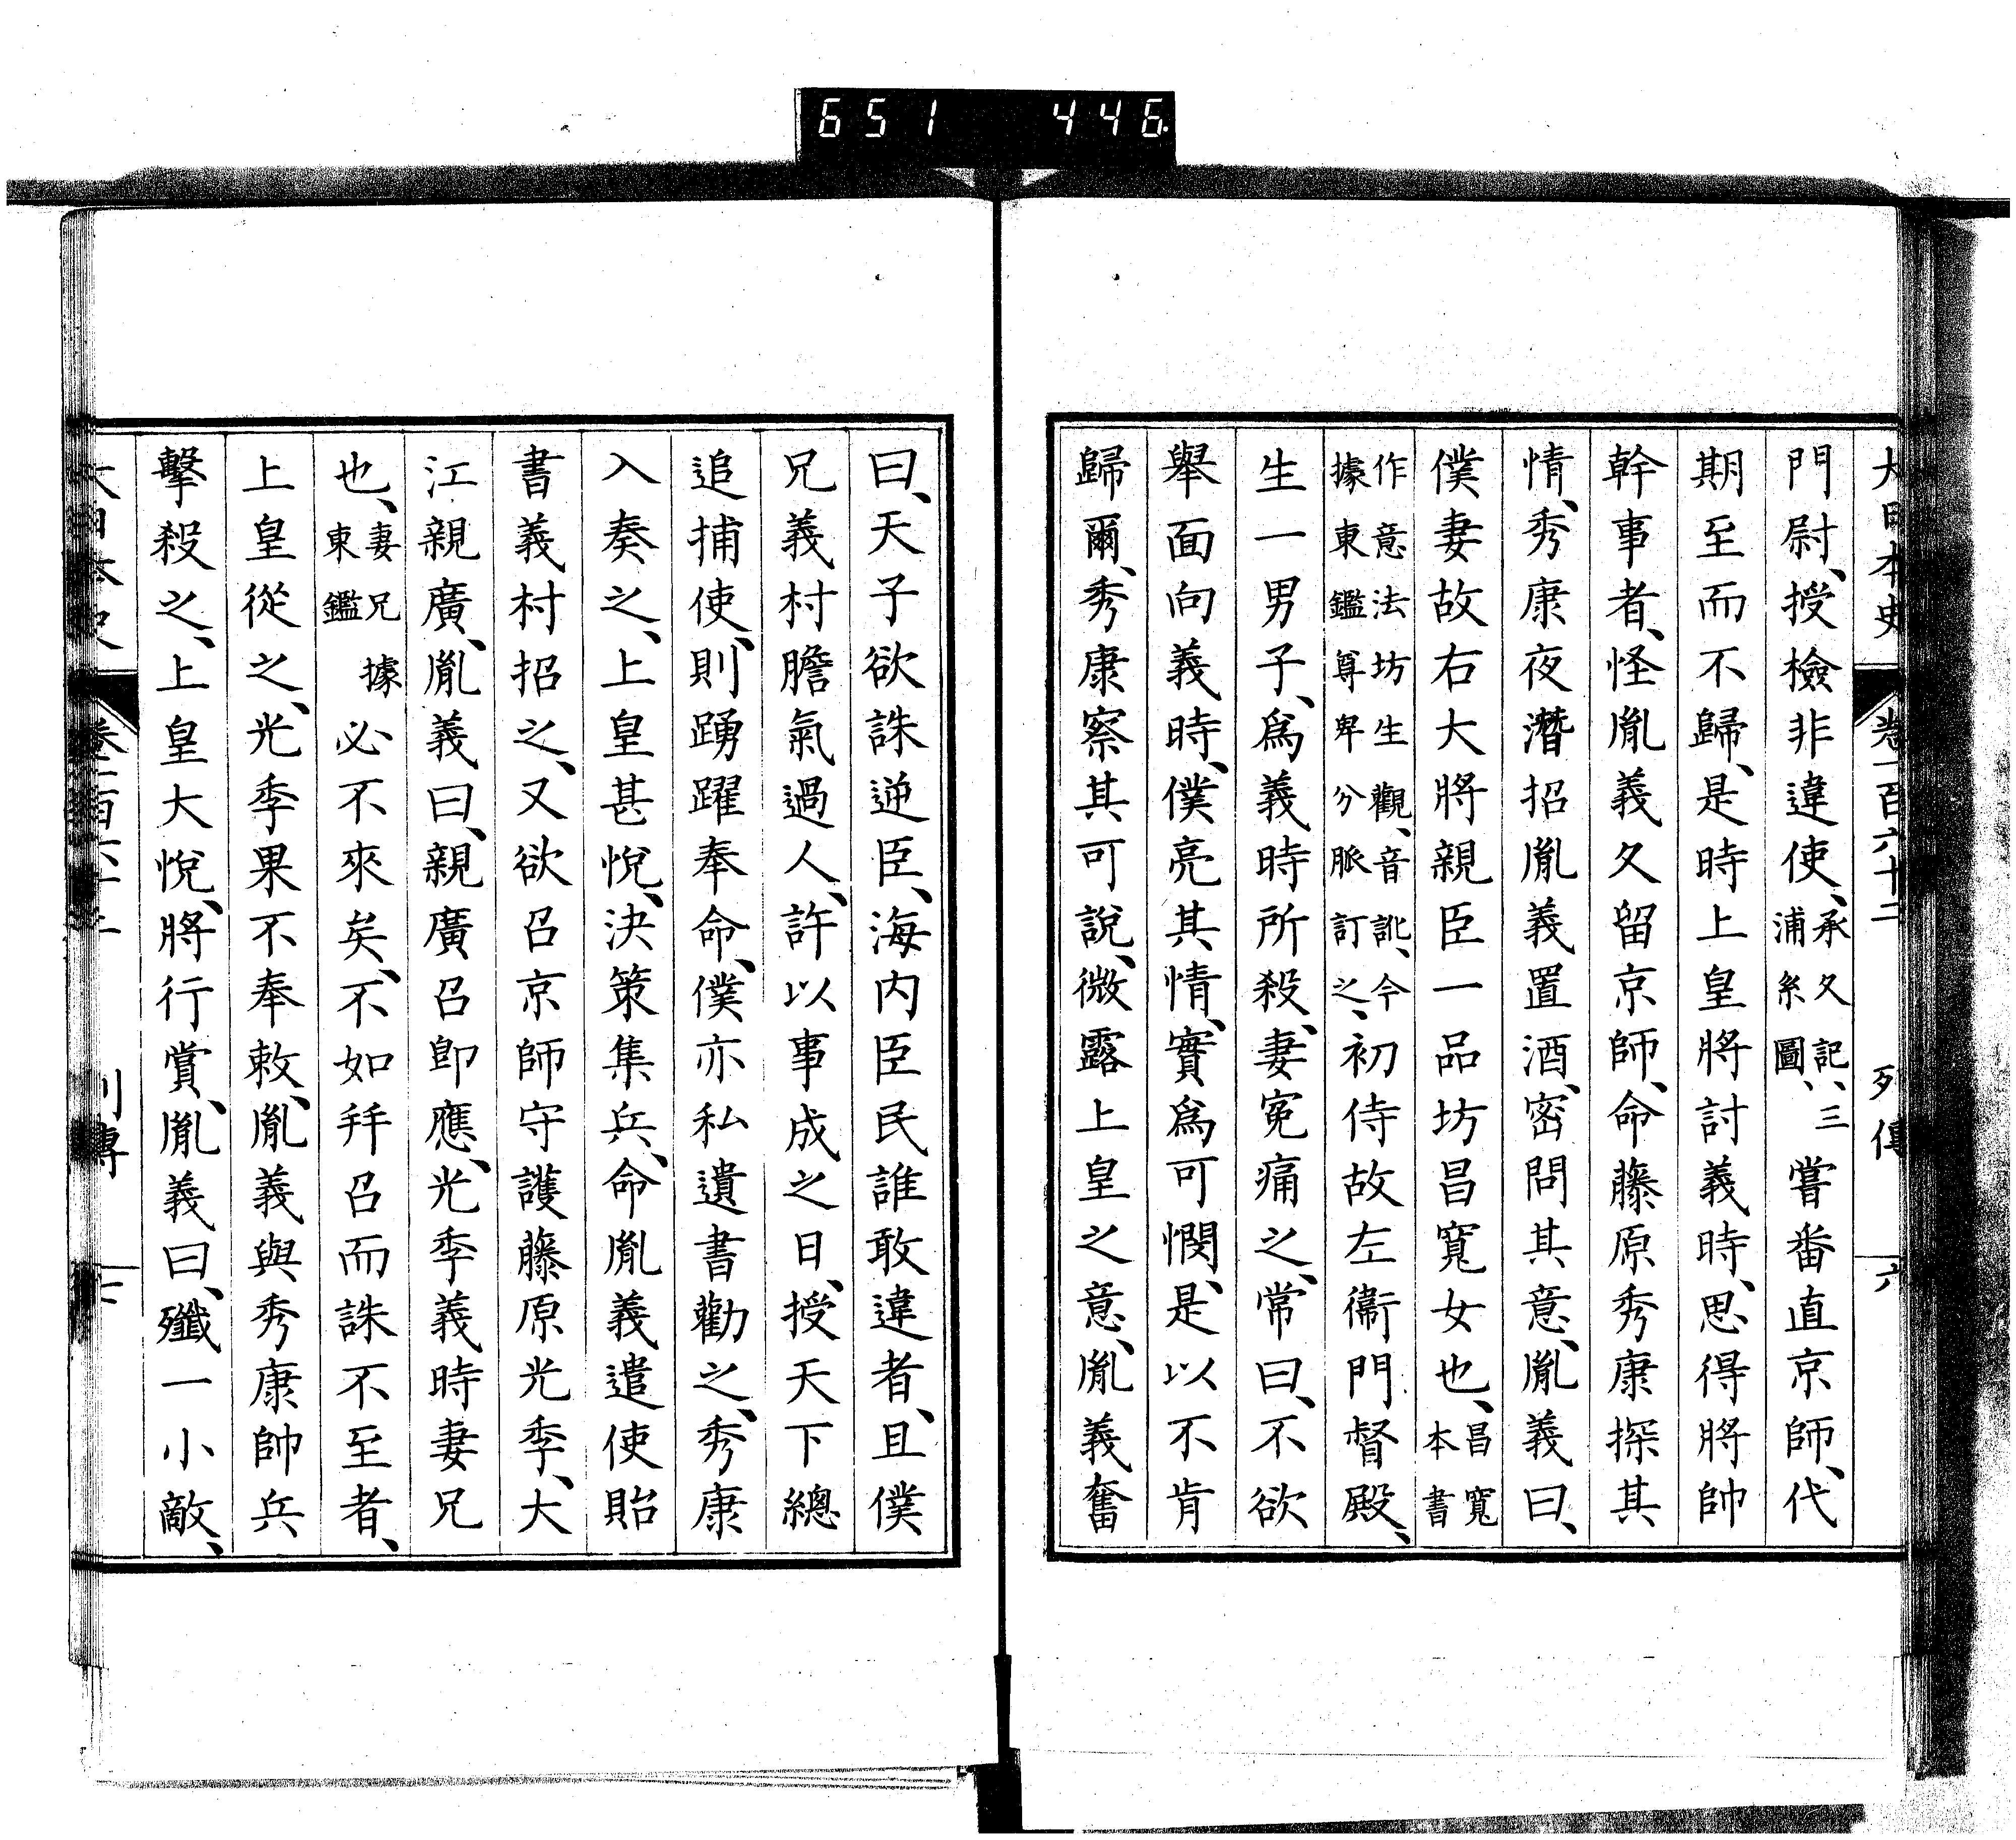 651 446
大日本史 卷一百六十二 列傳 六
門尉、授檢非違使、承久記、三浦系圖、嘗番直京師、代
期至而不歸、是時上皇將討義時、思得將帥
幹事者、怪胤義久留京師、命藤原秀康探其
情、秀康夜潛招胤義置酒、密問其意、胤義曰、
僕妻故右大將親臣一品坊昌寬女也、昌寬本書
作意法坊生觀、音訛、今據東鑑尊卑分脈訂之、初侍故左衞門督殿、
生一男子、爲義時所殺、妻寃痛之、常曰、不欲
舉面向義時、僕亮其情、實爲可憫、是以不肯
歸爾、秀康察其可說、微露上皇之意、胤義奮
曰、天子欲誅逆臣、海内臣民誰敢違者、且僕
兄義村膽氣過人、許以事成之日、授天下總
追捕使、則踴躍奉命、僕亦私遺書勸之、秀康
入奏之、上皇甚悅、決策集兵、命胤義遣使貽
書義村招之、又欲召京師守護藤原光季、大
江親廣、胤義曰、親廣召卽應、光季義時妻兄
也、妻兄據東鑑必不來矣、不如拜召而誅不至者、
上皇從之、光季果不奉敕、胤義與秀康帥兵
擊殺之、上皇大悅、將行賞、胤義曰、殲一小敵、
大日本史 卷一百六十二 列傳 七